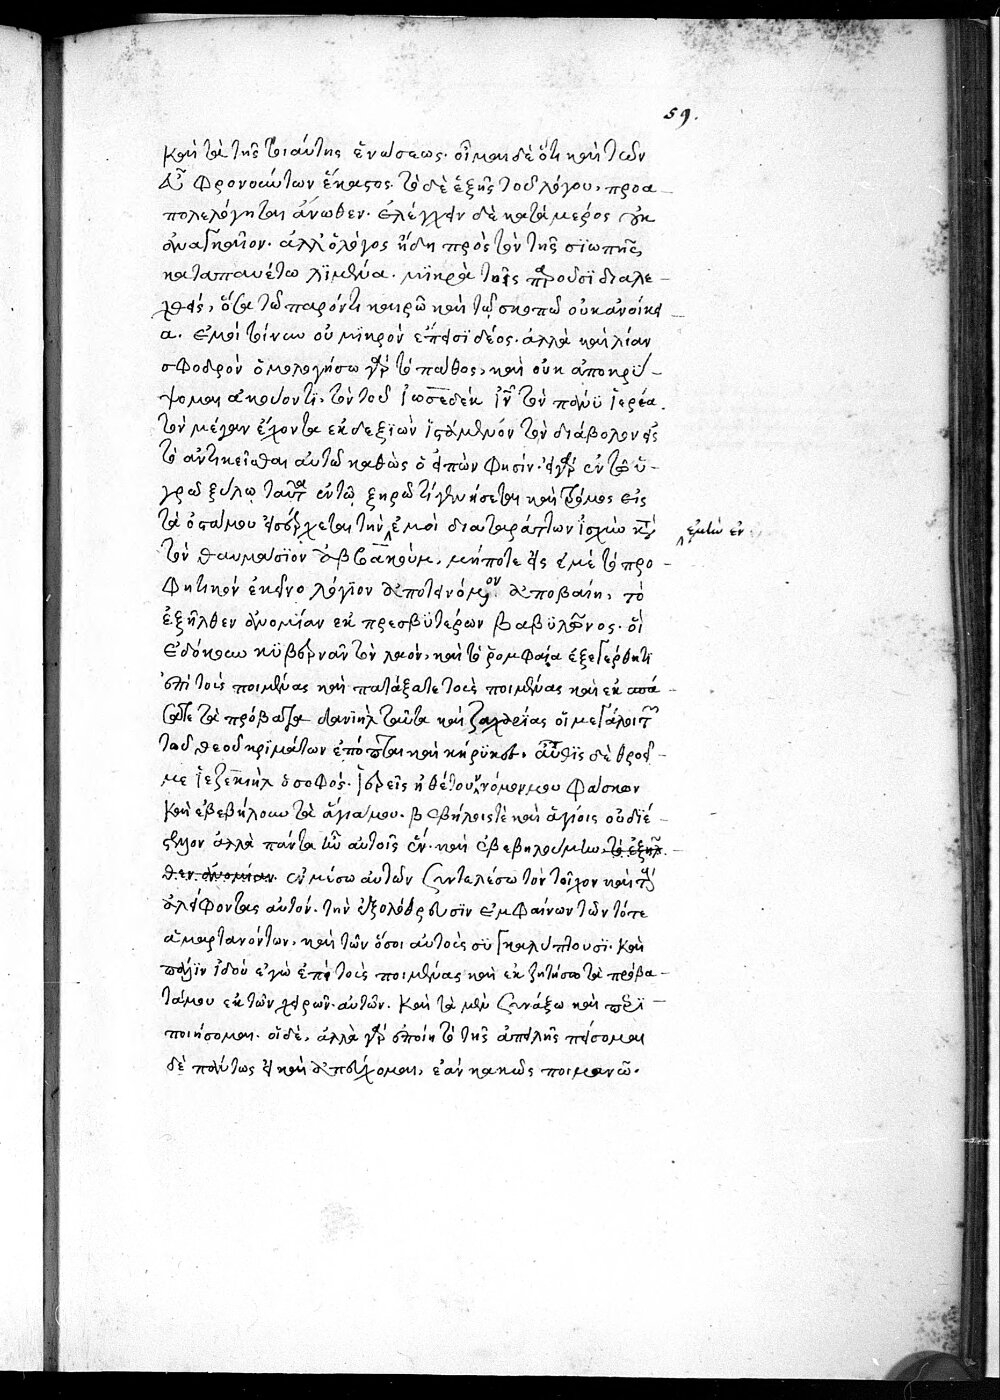 59.
καὶ τὰ τῆς τοιαύτης ἑνώσεως. οἶμαι δὲ ὅτι καὶ τῶν
εὖ φρονούντων ἕκαστος. τὸ δὲ ἑξῆς τοῦ λόγου, προα-
πολελόγηται ἄνωθεν. ἐλέγχειν δὲ κατὰ μέρος οὐκ
ἀναγκαῖον. ἀλλ' ὁ λόγος ἤδη πρὸς τὸν τῆς σιωπῆς
καταπαυέτω λιμένα. μικρὰ τοῖς παροῦσι διαλε-
χθείς, ὅσα τῷ παρόντι καιρῷ καὶ τῷ σκοπῷ οὐκ ἀνοίκει-
α. ἐμοὶ τοίνυν οὐ μικρὸν ἔπεισι δέος. ἀλλὰ καὶ λίαν
σφοδρὸν ὁμολογήσω γὰρ τὸ πάθος, καὶ οὐκ ἀποκρύ-
ψομαι ἀκούοντι, τὸν τοῦ Ἰωσεδὲκ ἰν τὸν πολὺ ἱερέα
τὸν μέγαν ἔχοντα ἐκ δεξιῶν ἱστάμενον τὸν διάβολον εἰς
τὸ ἀντικεῖσθαι αὐτῷ καθὼς ὁ εἰπών φησιν. εἰ γὰρ ἐν τῷ ὑ-
γρῷ ξύλῳ ταῦτα ἐν τῷ ξηρῷ τί γενήσεται καὶ τρόμος εἰς
τὰ ὀστᾶ μου εἰσέρχεται τὴν ἐμοὶ διαταράττων ἰσχὺν κατὰ
ἐμοὶ ἐν
τὸν θαυμάσιον ἀββακούμ, μήποτε εἰς ἐμὲ τὸ προ-
φητικὸν ἐκεῖνο λόγιον ἀποτεινόμενον ἀποβαίη, τὸ
ἐξῆλθεν ἀνομίαν ἐκ πρεσβυτέρων βαβυλῶνος. οἳ
ἐδόκουν κυβερνᾶν τὸν λαόν, καὶ τὸ ῥομφαία ἐξεγέρθητι
ἐπὶ τοὺς ποιμένας καὶ πατάξατε τοὺς ποιμένας καὶ ἐκσπά-
σατε τὰ πρόβατα δανιὴλ ταῦτα καὶ ζαχαρίας οἱ μεγάλοι
τοῦ θεοῦ κριμάτων ἐπόπται καὶ κήρυκες, αὖθις δὲ θροεῖ-
με ἰεζεκιὴλ ὁ σοφός. ἱερεῖς ἠθέτουν νόμον μου φάσκων
καὶ ἐβεβήλουν τὰ ἅγιά μου. βεβήλοις τὲ καὶ ἁγίοις οὐ διέ-
στελλον ἀλλὰ πάντα ἦν αὐτοῖς ἕν. καὶ ἐβεβηλούμην, τὸ ἐξῆλ-
θεν ἀνομίαν. ἐν μέσῳ αὐτῶν συντελέσω τὸν τοῖχον καὶ τοὺς
ἀλείφοντας αὐτόν. τὴν ἐξολόθρευσιν ἐμφαίνων τῶν τότε
ἁμαρτανόντων, καὶ τῶν ὅσοι αὐτοὺς συγκαλύπτουσι. καὶ
πάλιν ἰδοὺ ἐγὼ ἐπὶ τοὺς ποιμένας καὶ ἐκζητήσω τὰ πρόβα-
τά μου ἐκ τῶν χειρῶν αὐτῶν. καὶ τὰ μὲν συνάξω καὶ περι-
ποιήσομαι. οἱ δέ, ἀλλὰ γὰρ ἐποίη τὸ τῆς ἀπειλῆς πείσομαι
δὲ πάντως εἰ καὶ ἀπεύχομαι, ἐὰν κακῶς ποιμανῶ.